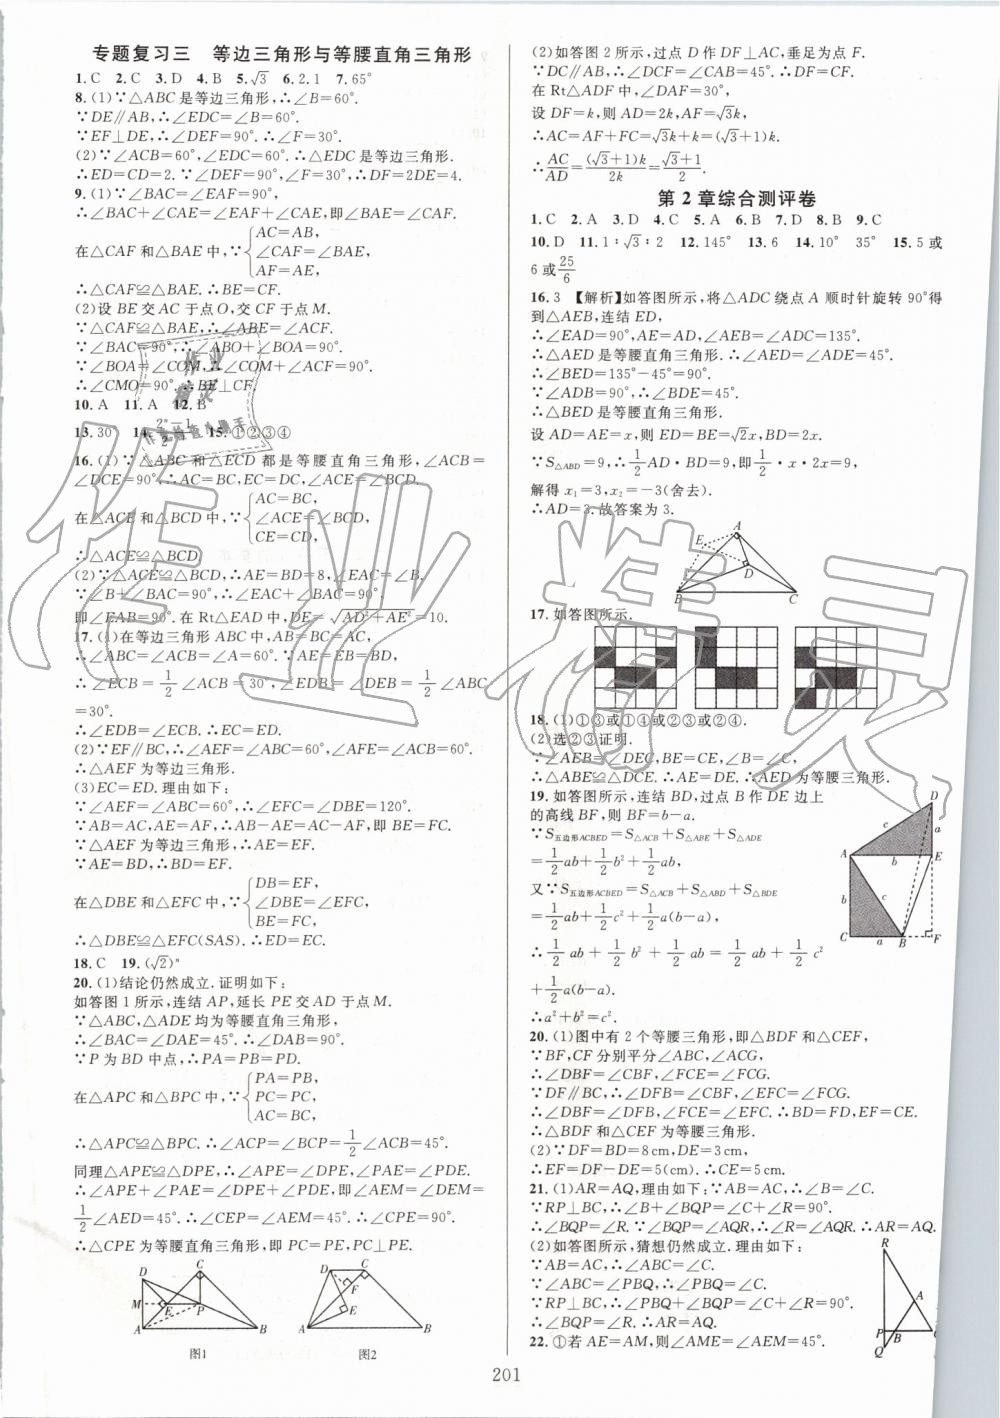 专题复习三 等边三角形与等腰直角三角形
1. C 2. C 3. D 4. B 5. √3 6. 2.1 7. 65°
8. (1)∵△ABC是等边三角形,∴∠B=60°.
∵DE∥AB,∴∠EDC=∠B=60°.
∵EF⊥DE,∴∠DEF=90°.∴∠F=30°.
(2)∵∠ACB=60°,∠EDC=60°.∴△EDC是等边三角形.
∴ED=CD=2.∵∠DEF=90°,∠F=30°,∴DF=2DE=4.
9. (1)∵∠BAC=∠EAF=90°,
∴∠BAC+∠CAE=∠EAF+∠CAE,即∠BAE=∠CAF.
在△CAF和△BAE中,∵{AC=AB,
∠CAF=∠BAE,
AF=AE,
∴△CAF≌△BAE.∴BE=CF.
(2)设BE交AC于点O,交CF于点M.
∵△CAF≌△BAE,∴∠ABE=∠ACF.
∵∠BAC=90°,∴∠ABO+∠BOA=90°.
∵∠BOA=∠COM,∴∠COM+∠ACF=90°.
∴∠CMO=90°.∴BE⊥CF.
10. A 11. A 12. B
13. 30 14. (2ⁿ-1)/2ⁿ 15. ①②③④
16. (1)∵△ABC和△ECD都是等腰直角三角形,∠ACB=
∠DCE=90°,∴AC=BC,EC=DC,∠ACE=∠BCD.
在△ACE和△BCD中,∵{AC=BC,
∠ACE=∠BCD,
CE=CD,
∴△ACE≌△BCD.
(2)∵△ACE≌△BCD,∴AE=BD=8,∠EAC=∠B.
∵∠B+∠BAC=90°,∴∠EAC+∠BAC=90°,
即∠EAB=90°.在Rt△EAD中,DE=√(AD²+AE²)=10.
17. (1)在等边三角形ABC中,AB=BC=AC,
∴∠ABC=∠ACB=∠A=60°.∵AE=EB=BD,
∴∠ECB=1/2∠ACB=30°,∠EDB=∠DEB=1/2∠ABC
=30°.
∴∠EDB=∠ECB.∴EC=ED.
(2)∵EF∥BC,∴∠AEF=∠ABC=60°,∠AFE=∠ACB=60°.
∴△AEF为等边三角形.
(3)EC=ED.理由如下:
∵∠AEF=∠ABC=60°,∴∠EFC=∠DBE=120°.
∵AB=AC,AE=AF,∴AB-AE=AC-AF,即BE=FC.
∵△AEF为等边三角形,∴AE=EF.
∵AE=BD,∴BD=EF.
在△DBE和△EFC中,∵{DB=EF,
∠DBE=∠EFC,
BE=FC,
∴△DBE≌△EFC(SAS).∴ED=EC.
18. C 19. (√2)ⁿ
20. (1)结论仍然成立.证明如下:
如答图1所示,连结AP,延长PE交AD于点M.
∵△ABC,△ADE均为等腰直角三角形,
∴∠BAC=∠DAE=45°.∴∠DAB=90°.
∵P为BD中点,∴PA=PD=PB.
在△APC和△BPC中,∵{PA=PB,
PC=PC,
AC=BC,
∴△APC≌△BPC.∴∠ACP=∠BCP=1/2∠ACB=45°.
同理△APE≌△DPE,∴∠APE=∠DPE,∠AEP=∠PDE.
∴∠APE+∠PAE=∠DPE+∠PDE,即∠AEM=∠DEM=
1/2∠AED=45°.∴∠CEP=∠AEM=45°.∴∠CPE=90°.
∴△CPE为等腰直角三角形,即PC=PE,PC⊥PE.
D C M E P A B
图1
D C F E A B
图2
(2)如答图2所示,过点D作DF⊥AC,垂足为点F.
∵DC∥AB,∴∠DCF=∠CAB=45°.∴DF=CF.
在Rt△ADF中,∠DAF=30°,
设DF=k,则AD=2k,AF=√3k.
∴AC=AF+FC=√3k+k=(√3+1)k.
∴AC/AD=(√3+1)k/2k=(√3+1)/2.
第2章综合测评卷
1. C 2. A 3. D 4. C 5. A 6. B 7. D 8. B 9. C
10. D 11. 1∶√3∶2 12. 145° 13. 6 14. 10° 35° 15. 5或
6或25/6
16. 3 【解析】如答图所示,将△ADC绕点A顺时针旋转90°得
到△AEB,连结ED,
∴∠EAD=90°,AE=AD,∠AEB=∠ADC=135°.
∴△AED是等腰直角三角形.∴∠AED=∠ADE=45°.
∴∠BED=135°-45°=90°.
∵∠ADB=90°,∴∠BDE=45°.
∴△BED是等腰直角三角形.
设AD=AE=x,则ED=BE=√2x,BD=2x.
∵S△ABD=9,∴1/2AD·BD=9,即1/2·x·2x=9,
解得x₁=3,x₂=-3(舍去).
∴AD=3.故答案为3.
A E D B C
17. 如答图所示.
18. (1)①③或①④或②③或②④.
(2)选②③证明.
∵∠AEB=∠DEC,BE=CE,∠B=∠C,
∴△ABE≌△DCE.∴AE=DE.∴△AED为等腰三角形.
19. 如答图所示,连结BD,过点B作DE边上
的高线BF,则BF=b-a.
∵S五边形ACBED=S△ACB+S△ABE+S△ADE
=1/2ab+1/2b²+1/2ab,
又∵S五边形ACBED=S△ACB+S△ABD+S△BDE
=1/2ab+1/2c²+1/2a(b-a),
∴1/2ab+1/2b²+1/2ab=1/2ab+1/2c²
+1/2a(b-a).
∴a²+b²=c².
D c a A b E b c C a B F
20. (1)图中有2个等腰三角形,即△BDF和△CEF,
∵BF,CF分别平分∠ABC,∠ACG,
∴∠DBF=∠CBF,∠FCE=∠FCG.
∵DF∥BC,∴∠DFB=∠CBF,∠EFC=∠FCG.
∴∠DBF=∠DFB,∠FCE=∠EFC.∴BD=FD,EF=CE.
∴△BDF和△CEF为等腰三角形.
(2)∵DF=BD=8cm,DE=3cm,
∴EF=DF-DE=5(cm).∴CE=5cm.
21. (1)AR=AQ,理由如下:∵AB=AC,∴∠B=∠C.
∵RP⊥BC,∴∠B+∠BQP=∠C+∠R=90°.
∴∠BQP=∠R.∵∠BQP=∠AQR,∴∠R=∠AQR.∴AR=AQ.
(2)如答图所示,猜想仍然成立.理由如下:
∵AB=AC,∴∠ABC=∠C.
∵∠ABC=∠PBQ,∴∠PBQ=∠C.
∵RP⊥BC,∴∠PBQ+∠BQP=∠C+∠R=90°.
∴∠BQP=∠R.∴AR=AQ.
R A P B C Q
22. ①若AE=AM,则∠AME=∠AEM=45°.
201
作业精灵